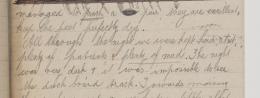 managed to a pair, they are excellent,
keep the feet perfectly dry.
All through the night we were kept hard at it
plenty of shrapnel & plenty of mud. The night
was very dark & it was impossible to see
the duck board track. Towards morning